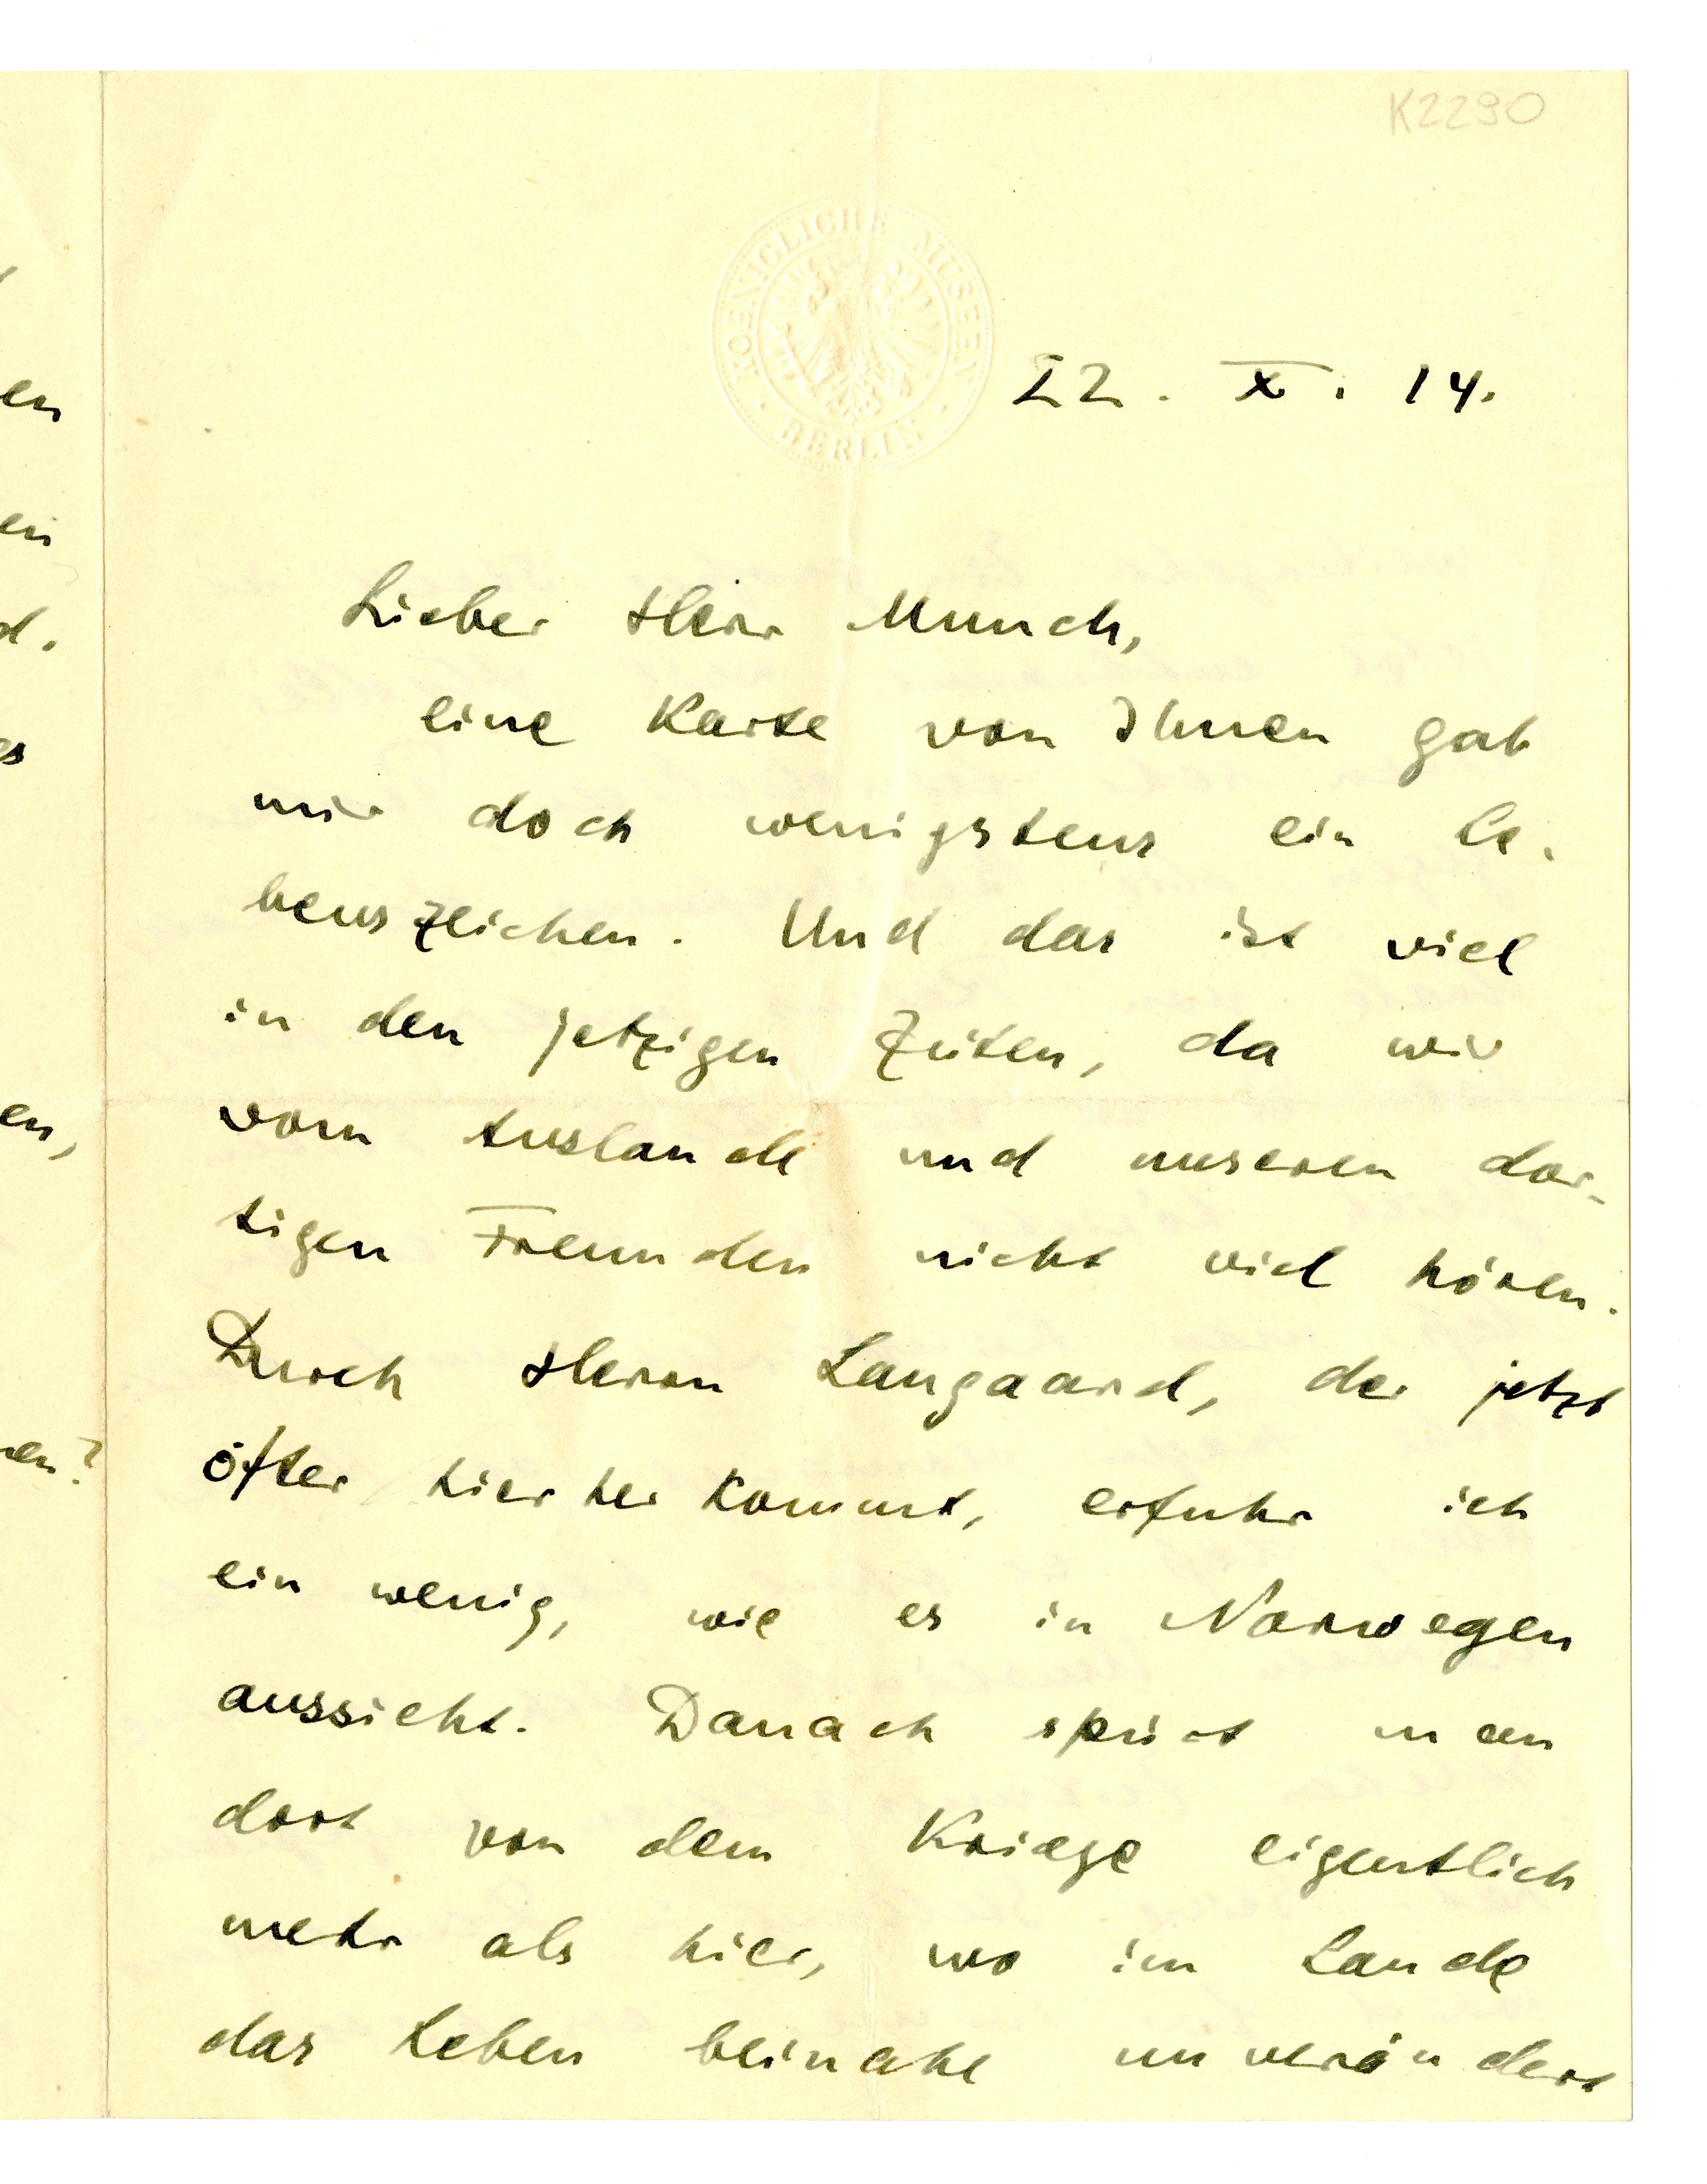 K2290
KOENIGLICHE MUSEEN
BERLIN
22. X. 14.
Lieber Herr Munch,
eine Karte von Ihnen gab
mir doch wenigstens ein Le-
benszeichen. Und das ist viel
in den jetzigen Zeiten, da wir
vom Auslande und unseren dor-
tigen Freunden nicht viel hören.
Durch Herrn Langaard, der jetzt
öfter hierher kommt, erfuhr ich
ein wenig, wie es in Norwegen
aussieht. Danach spürt man
dort von dem Kriege eigentlich
mehr als hier, wo im Lande
das Leben beinahe unverändert
en
en
d.
es
en,
en?